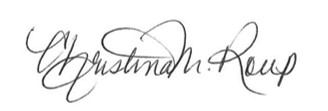 Christina M. Roup